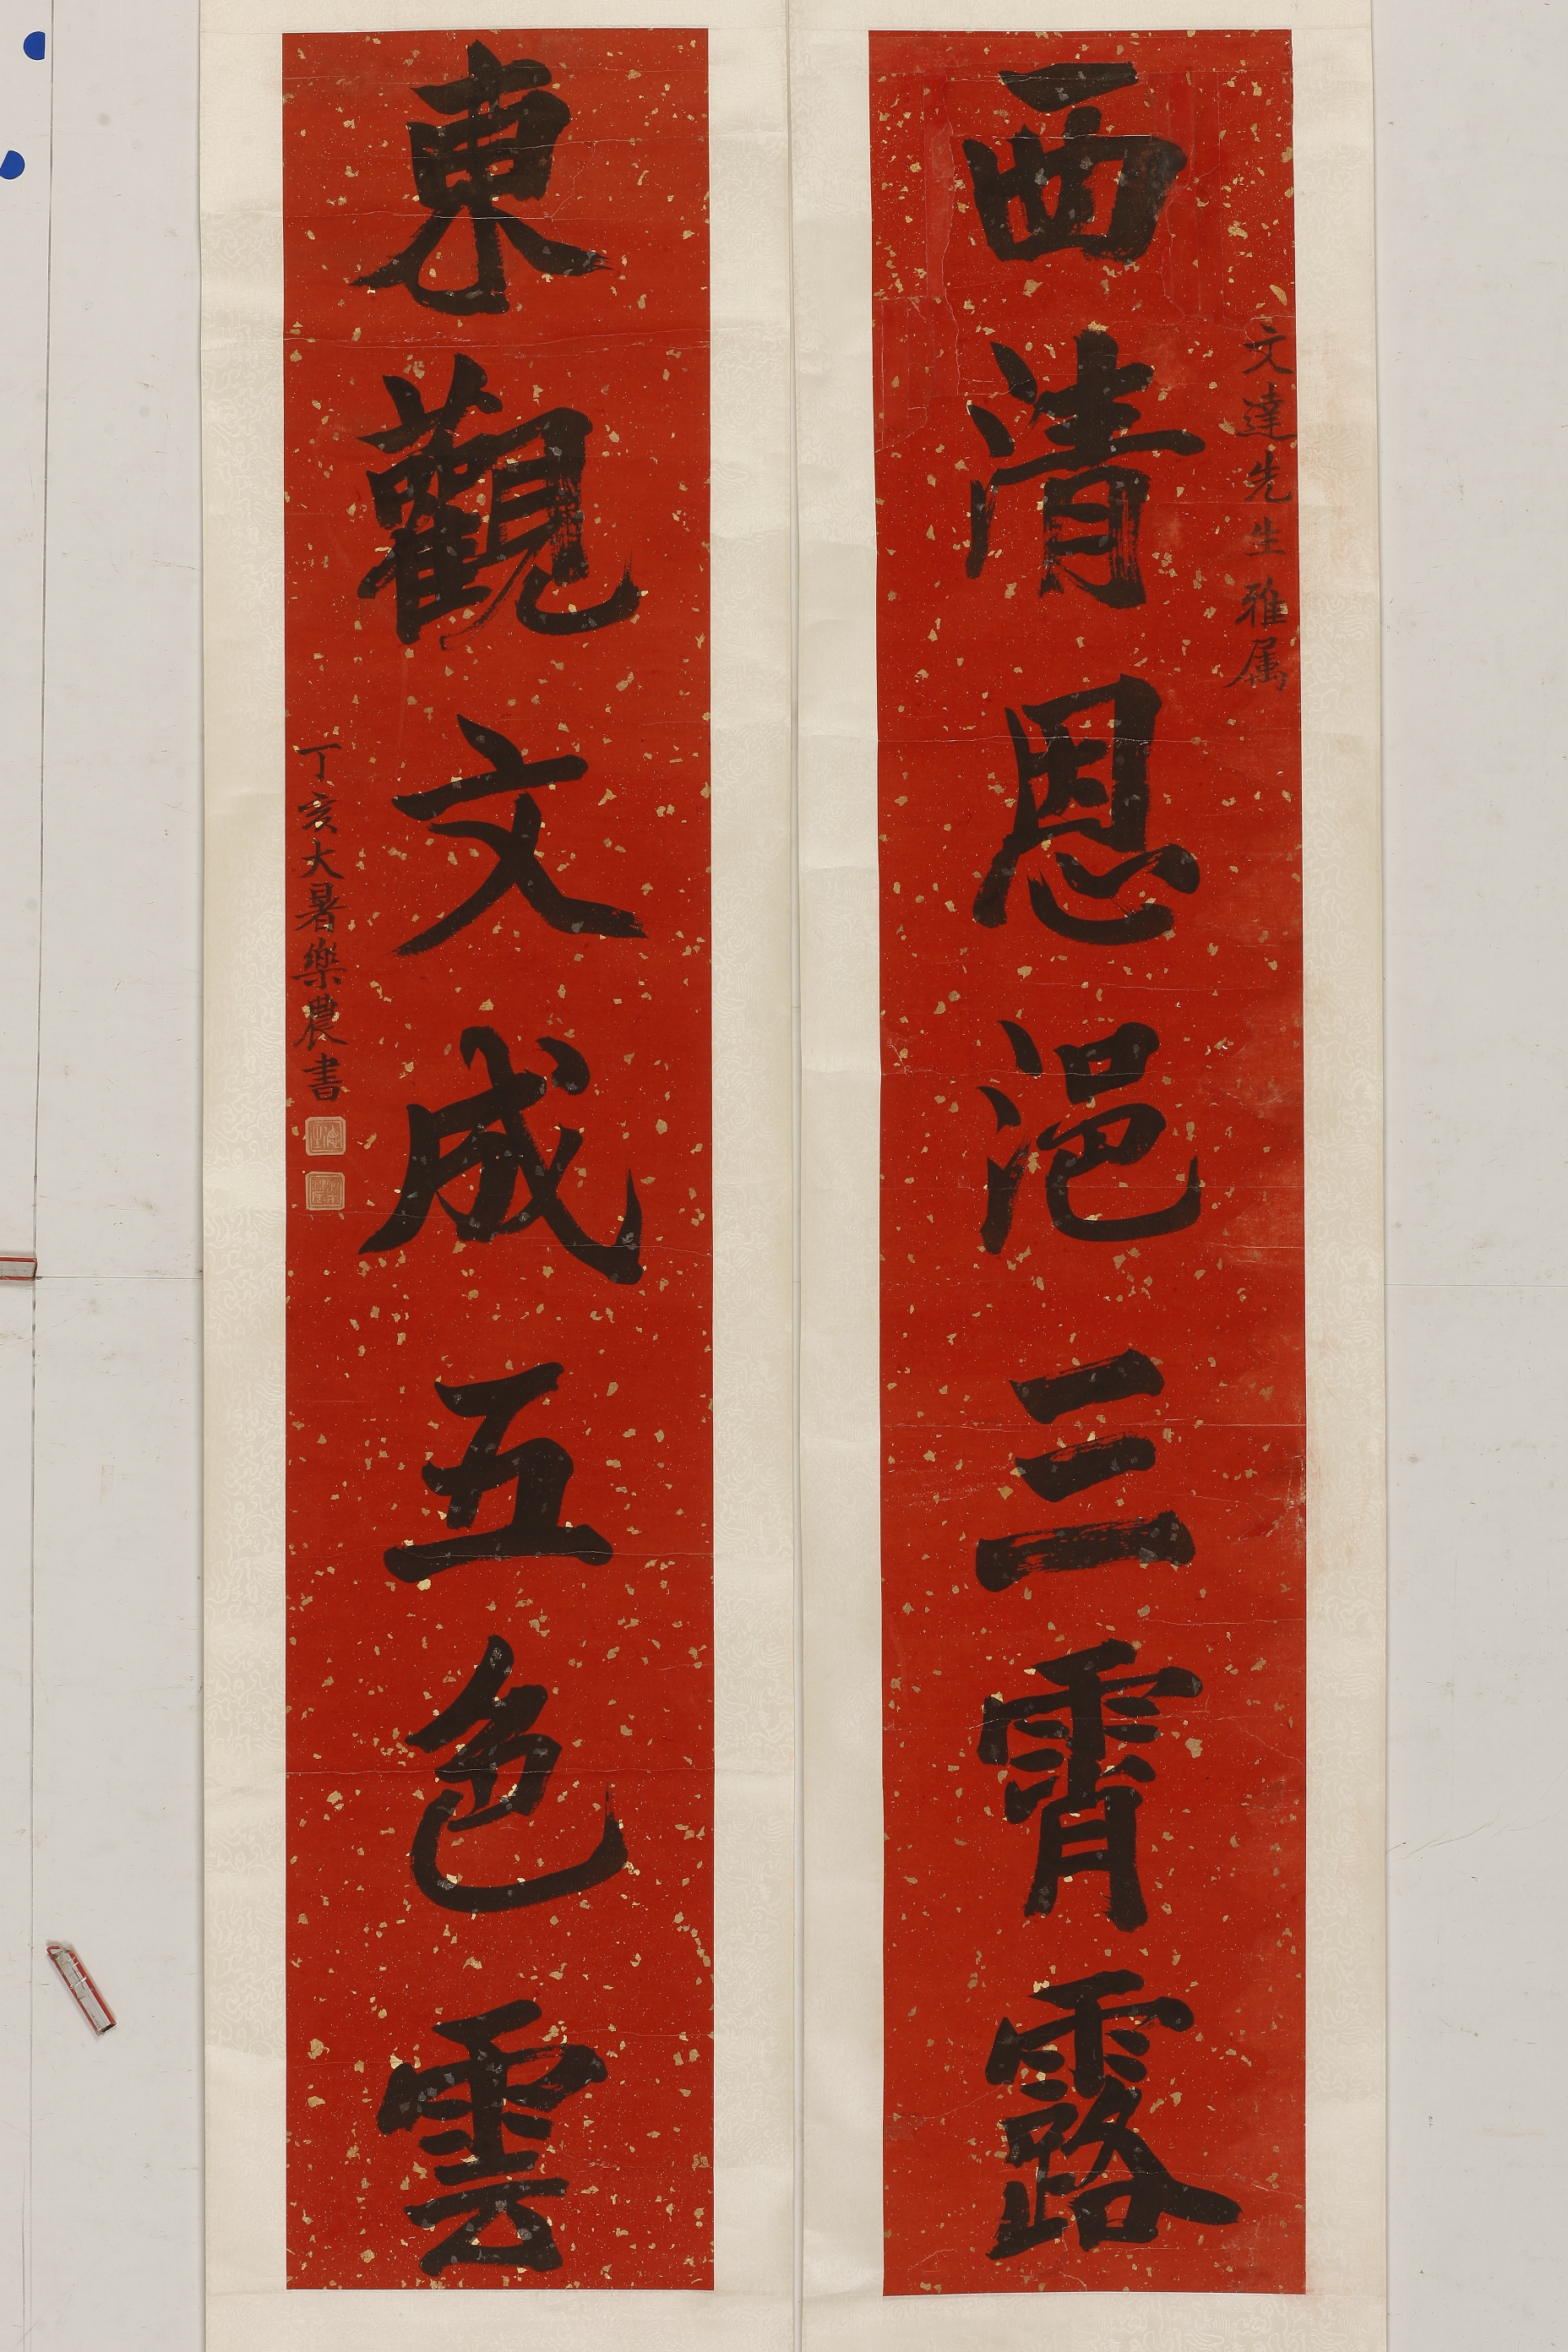 文達先生雅属
西清恩浥三霄露
東觀文成五色雲
丁亥大暑樂農書